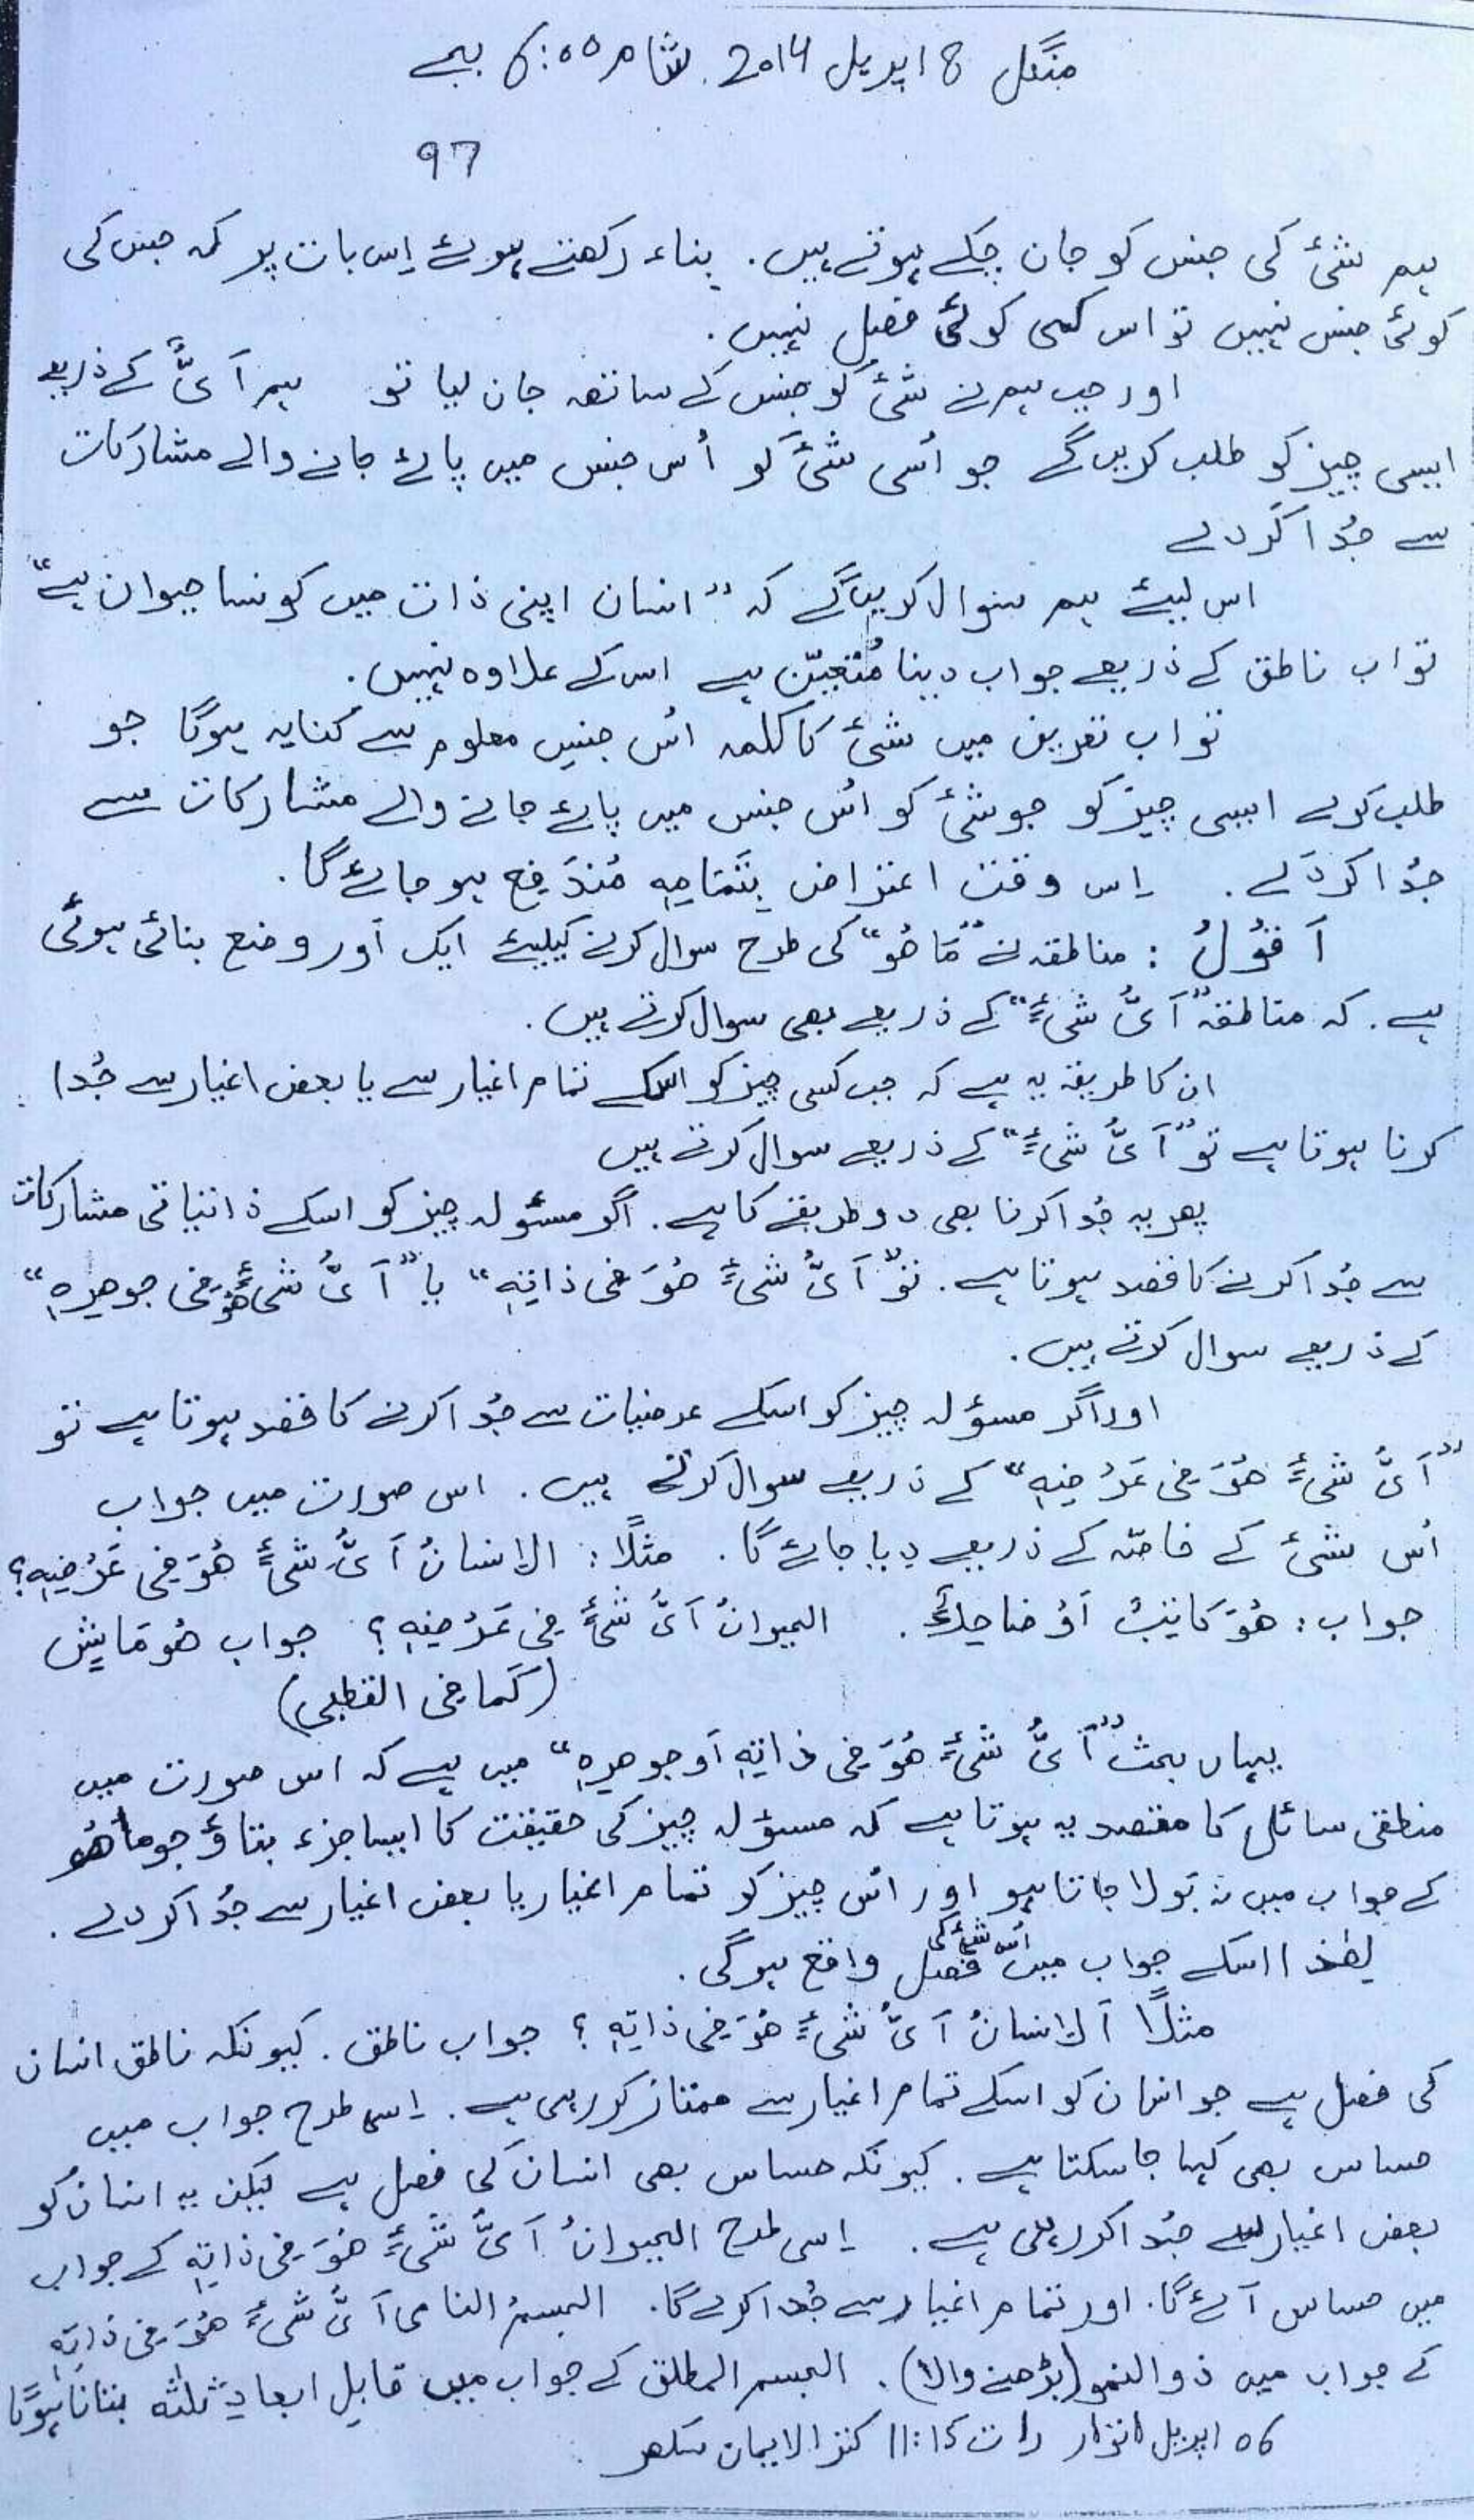 منگل 8 اپریل 2014 شام 6:00 بجے
97
ہم شئ کی جنس کو جان چکے ہوتے ہیں. بناء رکھتے ہوئے اِس بات پر کہ جس کی
کوئی جنس نہیں تو اس کی کوئی فصل نہیں.
اور جب ہم نے شئ کو جنس کے ساتھ جان لیا تو ہم اَیُّ کے ذریعے
ایسی چیز کو طلب کریں گے جو اُسی شئ کو اُس جنس میں پائے جانے والے مشارکات
سے جُدا کر دے
اس لیئے ہم سوال کریں گے کہ "انسان اپنی ذات میں کونسا حیوان ہے"
تو اب ناطق کے ذریعے جواب دینا مُتَعَیّن ہے اس کے علاوہ نہیں.
تو اب تعریف میں شئ کا کلمہ اُس جنسِ معلوم سے کنایہ ہوگا جو
طلب کرے ایسی چیز کو جو شئ کو اُس جنس میں پائے جانے والے مشارکات سے
جُدا کر دے. اِس وقت اعتراض بِتَمَامِہٖ مُندَفِع ہو جائے گا.
اَقُوْلُ : مناطقہ نے "مَا ھُوَ" کی طرح سوال کرنے کیلیئے ایک اَور وضع بنائی ہوئی
ہے. کہ مناطقہ "اَیُّ شَیْءٍ" کے ذریعے بھی سوال کرتے ہیں.
ان کا طریقہ یہ ہے کہ جب کسی چیز کو اسکے تمام اغیار سے یا بعض اغیار سے جُدا
کرنا ہوتا ہے تو "اَیُّ شَیْءٍ" کے ذریعے سوال کرتے ہیں
پھر یہ جُدا کرنا بھی دو طریقے کا ہے. اگر مسئولہ چیز کو اسکے ذاتیاتی مشارکات
سے جُدا کرنے کا قصد ہوتا ہے. تو "اَیُّ شَیْءٍ ھُوَ فی ذاتِہٖ" یا "اَیُّ شَیْءٍ ھُوَ فی جوھرِہٖ"
کے ذریعے سوال کرتے ہیں.
اور اگر مسؤلہ چیز کو اسکے عرضیات سے جُدا کرنے کا قصد ہوتا ہے تو
"اَیُّ شَیْءٍ ھُوَ فی عَرْضِہٖ" کے ذریعے سوال کرتے ہیں. اس صورت میں جواب
اُس شئ کے خاصّہ کے ذریعے دیا جائے گا. مثلًا : الانسانُ اَیُّ شَیْءٍ ھُوَ فی عَرْضِہٖ؟
جواب : ھُوَ کَاتِبٌ اَوْ ضَاحِکٌ. الحیوانُ اَیُّ شَیْءٍ فی عَرْضِہٖ؟ جواب ھُوَ مَاشٍ
(کَما فی القطبی)
یہاں بحث "اَیُّ شَیْءٍ ھُوَ فی ذاتِہٖ اَو جوھرِہٖ" میں ہے کہ اس صورت میں
منطقی سائل کا مقصد یہ ہوتا ہے کہ مسؤلہ چیز کی حقیقت کا ایسا جزء بتاؤ جو ما ھُو
کے جواب میں نہ بولا جاتا ہو اور اُس چیز کو تمام اغیار یا بعض اغیار سے جُدا کر دے.
لھٰذا اسکے جواب میں اُس شئ کی فصل واقع ہوگی.
مثلًا اَلانسانُ اَیُّ شَیْءٍ ھُوَ فی ذاتِہٖ؟ جواب ناطق. کیونکہ ناطق انسان
کی فصل ہے جو انسان کو اسکے تمام اغیار سے ممتاز کر رہی ہے. اِسی طرح جواب میں
حساس بھی کہا جا سکتا ہے. کیونکہ حساس بھی انسان کی فصل ہے لیکن یہ انسان کو
بعض اغیار سے جُدا کر رہی ہے. اِسی طرح الحیوانُ اَیُّ شَیْءٍ ھُوَ فی ذاتِہٖ کے جواب
میں حساس آئے گا. اور تمام اغیار سے جُدا کرے گا. الجسمُ النامی اَیُّ شَیْءٍ ھُوَ فی ذاتِہٖ
کے جواب میں ذو النمو (بڑھنے والا). الجسم المطلق کے جواب میں قابلِ ابعادِ ثلٰثہ بتانا ہوگا
06 اپریل اتوار رات 11:15 کنز الایمان سکھر